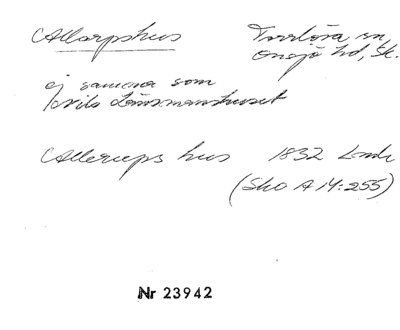 Allarpshus Torrlösa sn,
Onsjö hd, Sk.
ej samma som
Nils Länsmanshuset
Allerups hus 1832 Lmk
(Sko A 14:255)
Nr 23942